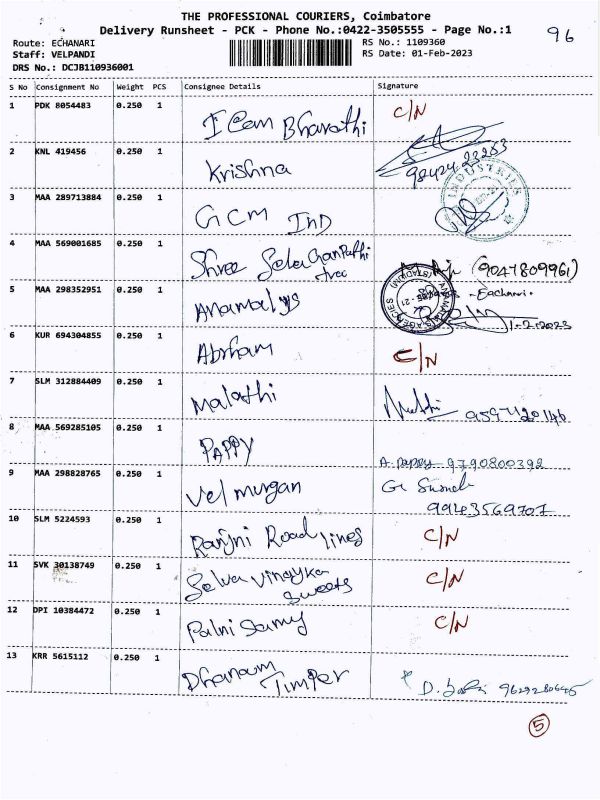 THE PROFESSIONAL COURIERS, Coimbatore
Delivery Runsheet - PCK - Phone No.:0422-3505555 - Page No.:1
96
Route: ECHANARI
RS No.: 1109360
Staff: VELPANDI
RS Date: 01-Feb-2023
DRS No.: DCJB110936001
S No Consignment No Weight PCS Consignee Details Signature
1 PDK 8054483 0.250 1 I Can Bharathi C/N
2 KNL 419456 0.250 1 Krishna 98424 23253
3 MAA 289713884 0.250 1 GCM IND INDUSTRIES
4 MAA 569001685 0.250 1 Shree (9047809961)
5 MAA 298352951 0.250 1 Anamalys Eachanari 1-2-2023
6 KUR 694304855 0.250 1 Abrham C/N
7 SLM 312884409 0.250 1 Malathi
8 MAA 569285105 0.250 1 PAPPY A. pappy 9790800398
9 MAA 298828765 0.250 1 Vel murgan 9943569707
10 SLM 5224593 0.250 1 Ranjni Road lines C/N
11 SVK 30138749 0.250 1 Selva vinayka sweets C/N
12 DPI 10384472 0.250 1 Palni Samy C/N
13 KRR 5615112 0.250 1 Dhanam Timper 9629280645
5